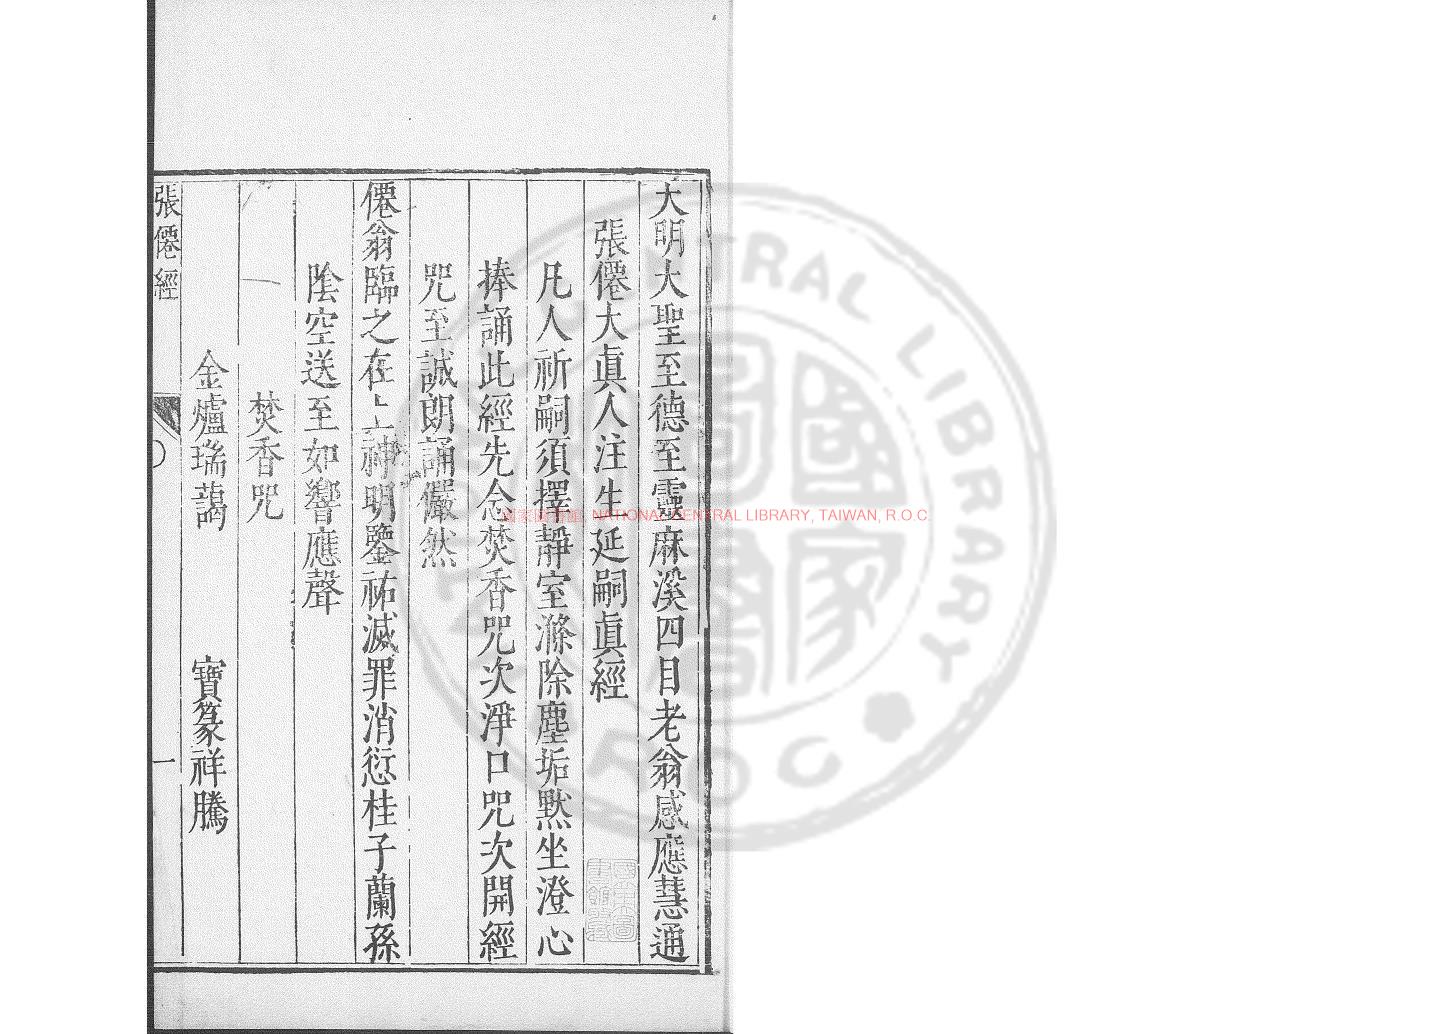 大明大聖至德至靈麻溪四目老翁感應慧通
張僊大眞人注生延嗣眞經
凡人祈嗣須擇靜室滌除塵垢默坐澄心
捧誦此經先念焚香咒次淨口咒次開經
咒至誠朗誦儼然
僊翁臨之在上神明鑒祐滅罪消愆桂子蘭孫
陰空送至如響應聲
焚香咒
金爐瑞藹　寶篆祥騰
張僊經
一
國家圖書館, NATIONAL CENTRAL LIBRARY, TAIWAN, R.O.C.
CENTRAL LIBRARY
ROC